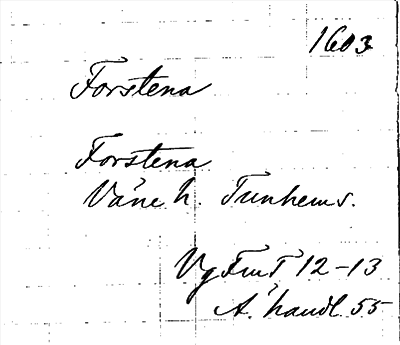 1603
Forstena
Forstena
Väne h. Tunhems.
Vg FmT 12-13
A. handl 55